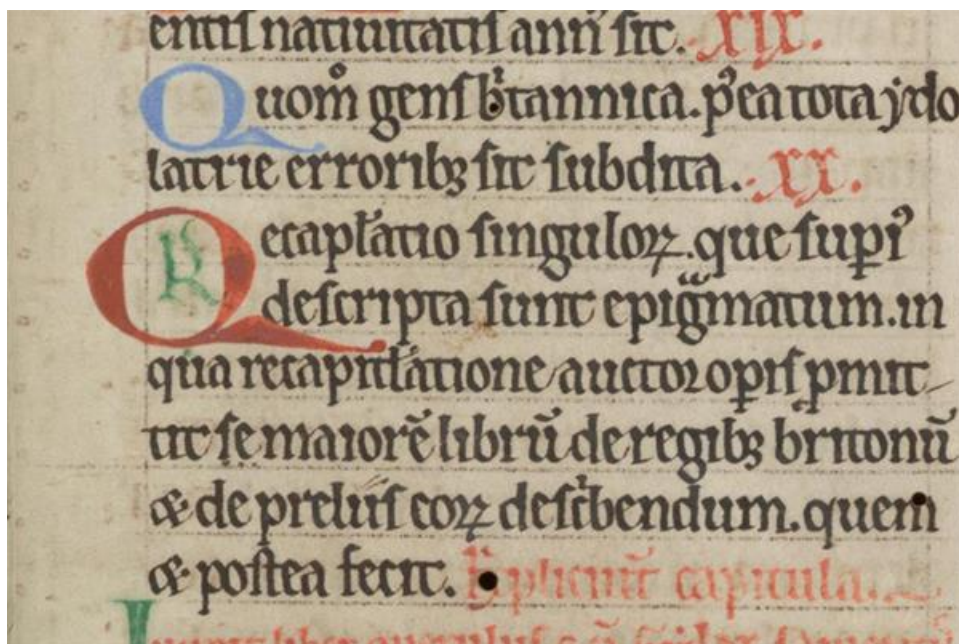 entis natiuitatis ann᷒ sit. .XIX.
Quom̊ gens b᷒tannica. p᷒ea tota ydo
latrie erroribꝫ sit subdita. .XX.
Recapƚatio singuloꝝ. que sup᷒i᷒
descripta sunt epig᷒matum. in
qua recapitƚatione auctor oꝑis ꝓmit
tit se maiorē librū de regibꝫ britonū
⁊ de preliis eoꝝ desc᷒bendum. quem
⁊ postea fecit. Expliciūt capitula.